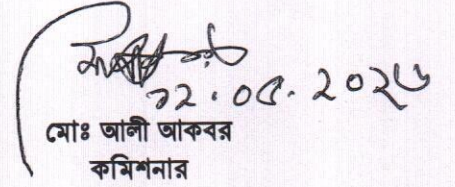 ১২.০৫.২০২৬
মোঃ আলী আকবর
কমিশনার